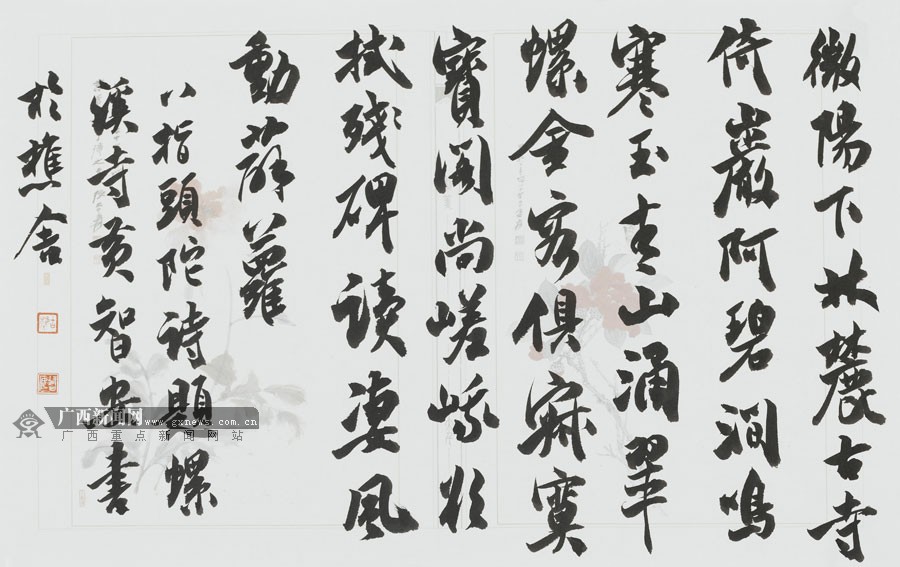 微陽下林麓古寺
倚巖阿碧澗鳴
寒玉青山涌翠
螺金容俱寂寞
寶閣尚嵯峨欲
拭殘碑讀凄風
動薜蘿
八指頭陀詩題螺
溪寺黃智書
於樵舍
广西新闻网
www.gxnews.com.cn
广西重点新闻网站